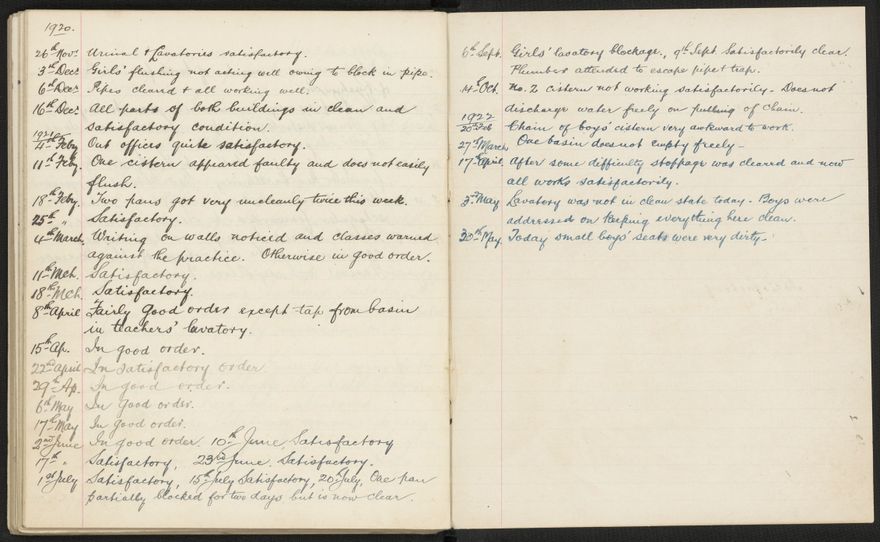 1920.
26th Novr Urinal & Lavatories satisfactory.
3rd Decr Girls' flushing not acting well owing to block in pipe.
6th Decr Pipes cleared & all working well.
16th Decr All parts of both buildings in clean and
satisfactory condition.
1921
4th Feby. Out offices quite satisfactory.
11th Feby. One cistern appeared faulty and does not easily
flush.
18th Feby. Two pans got very uncleanly twice this week.
25th " Satisfactory.
4th March. Writing on walls noticed and classes warned
against the practice. Otherwise in good order.
11th Mch. Satisfactory.
18th Mch. Satisfactory.
8th April Fairly good order except tap from basin
in teachers' lavatory.
15th Ap. In good order.
22nd April In satisfactory order
29th Ap. In good order.
6th May In good order.
17th May In good order.
2nd June In good order. 10th June Satisfactory
17th " Satisfactory, 23rd June. Satisfactory.
1st July Satisfactory, 15th July Satisfactory, 20th July, One pan
partially blocked for two days but is now clear.
6th Sept. Girls' lavatory blockage., 9th Sept. Satisfactorily clear.
Plumber attended to escape pipe & trap.
14th Oct. No. 2 cistern not working satisfactorily - Does not
discharge water freely on pulling of chain.
1922
20th Feb Chain of boys' cistern very awkward to work.
27th March One basin does not empty freely -
17th April. After some difficulty stoppage was cleared and now
all works satisfactorily.
3rd May Lavatory was not in clean state today. Boys were
addressed on keeping everything here clean.
30th May. Today small boys' seats were very dirty -